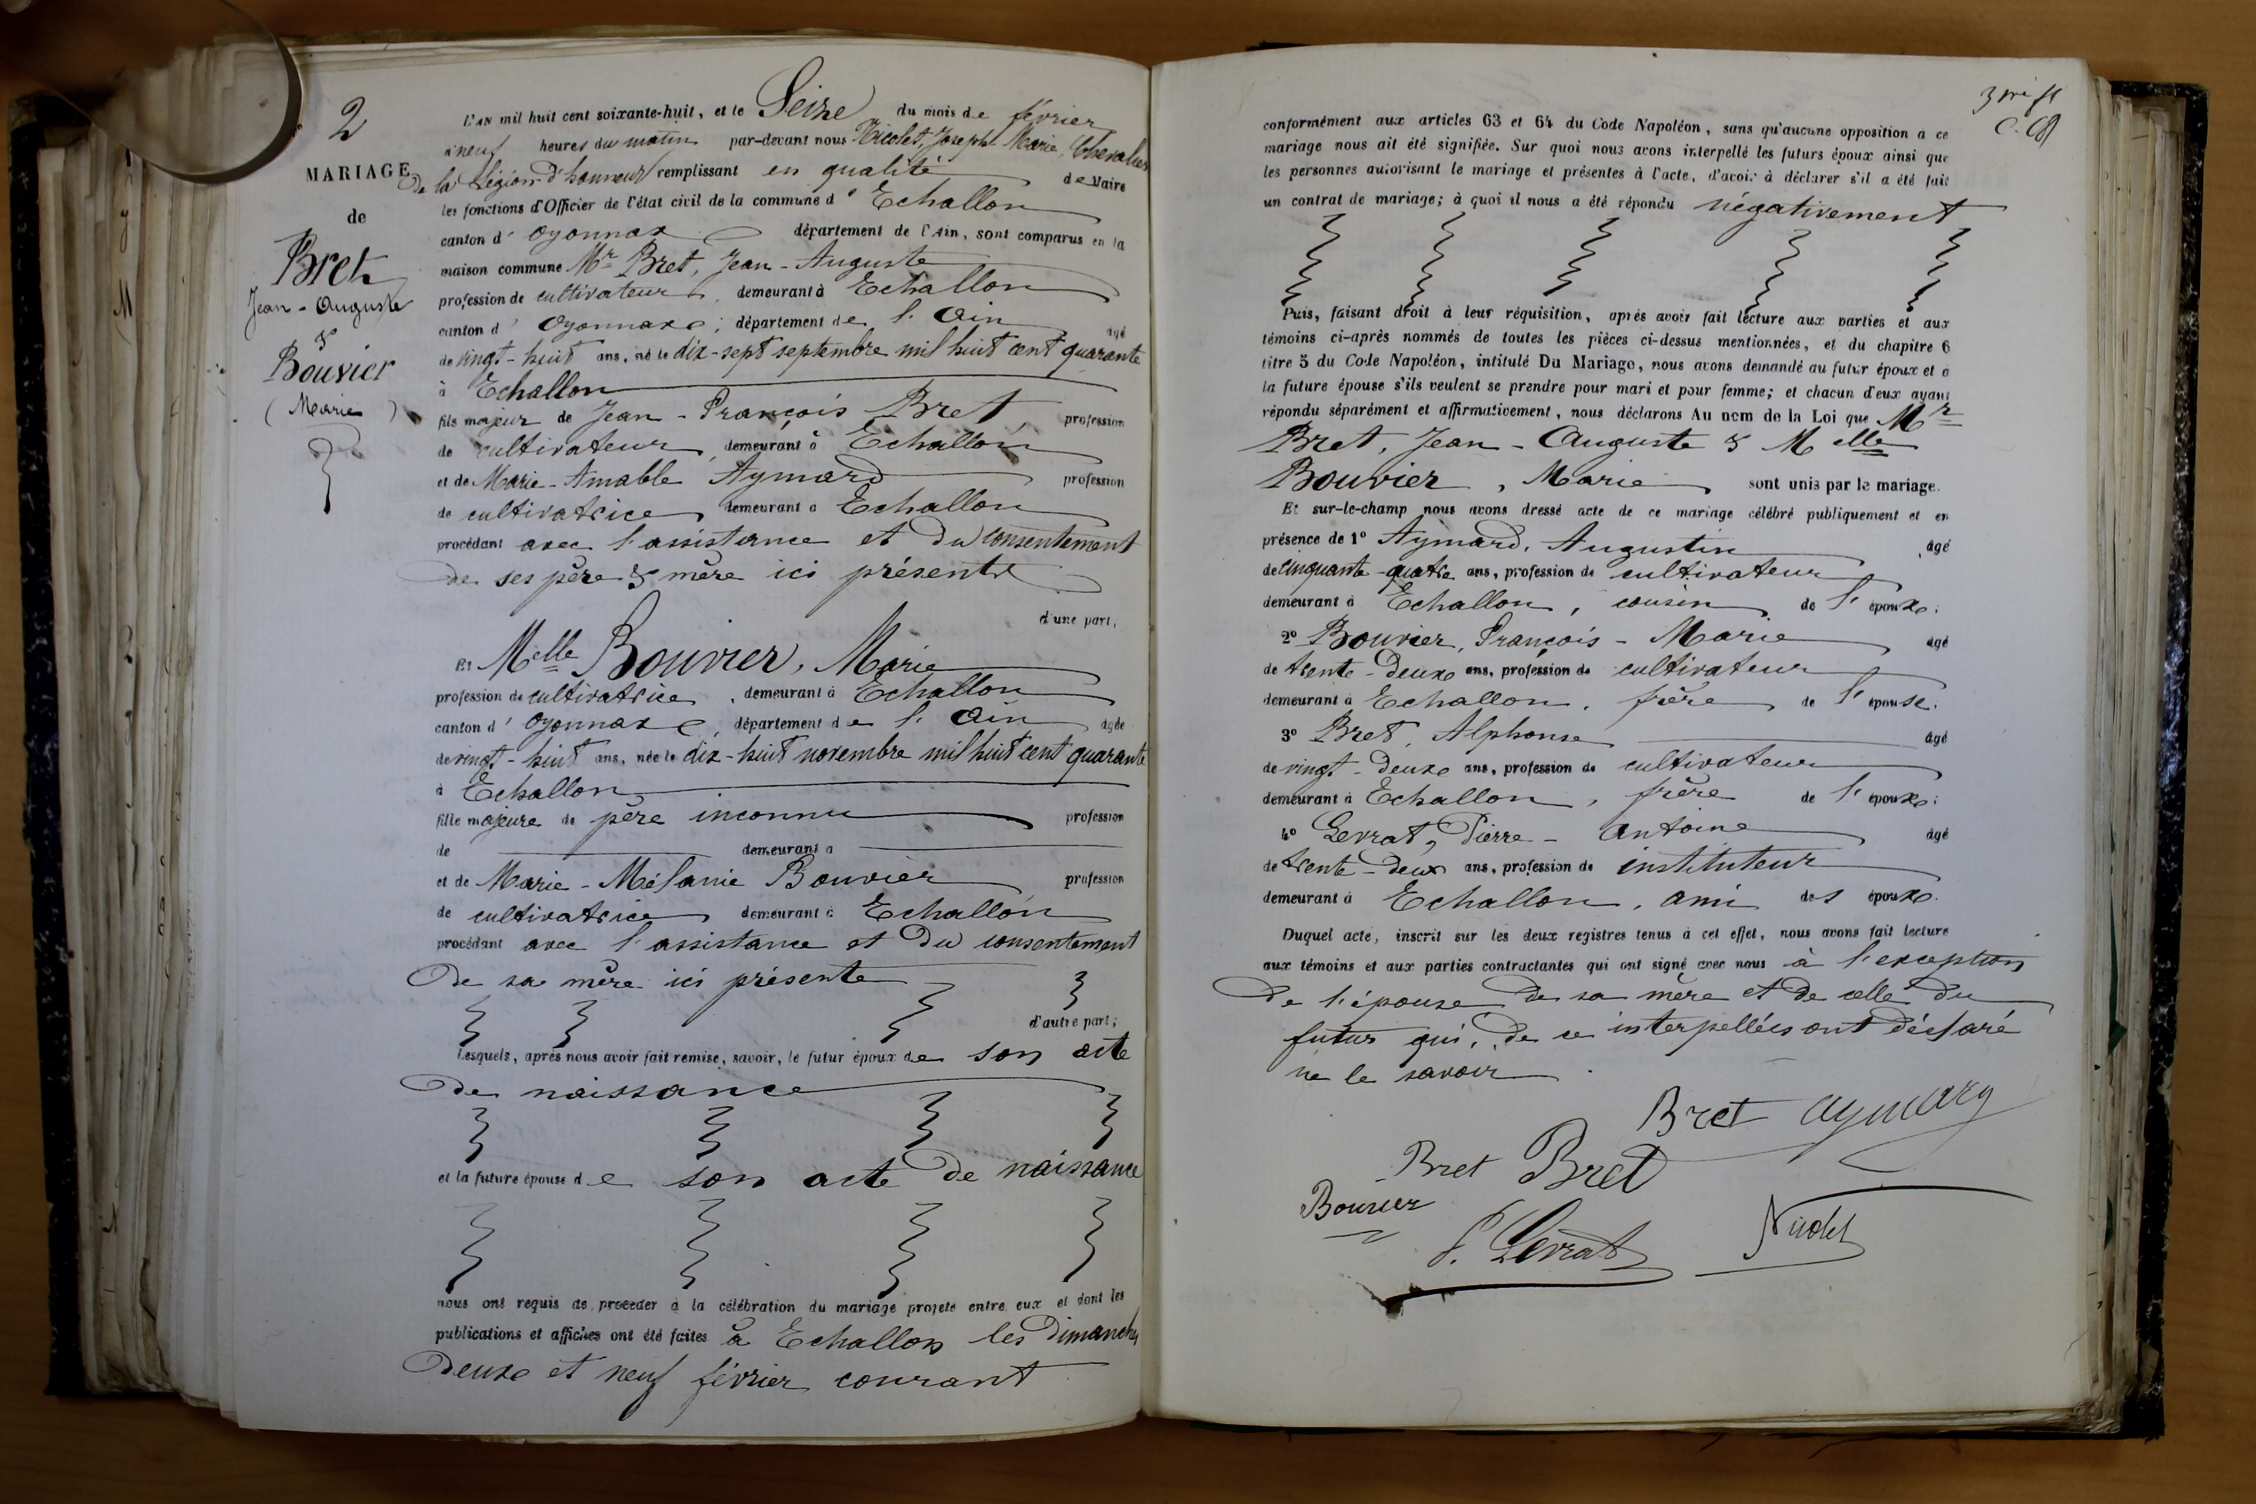 2
MARIAGE
de
Bret
Jean-Auguste
&
Bouvier
(Marie)
L'AN mil huit cent soixante-huit, et le Seize du mois de février
à neuf heures du matin par-devant nous Nicolet, Joseph Marie, Chevalier
de la Légion d'honneur remplissant en qualité de Maire
les fonctions d'Officier de l'état civil de la commune d'Echallon
canton d'Oyonnax département de l'Ain, sont comparus en la
maison commune Mr Bret, Jean-Auguste
profession de cultivateur, demeurant à Echallon
canton d'Oyonnax; département de l'Ain âgé
de vingt-huit ans, né le dix-sept septembre mil huit cent quarante
à Echallon
fils majeur de Jean-François Bret profession
de cultivateur, demeurant à Echallon
et de Marie-Amable Aymard profession
de cultivatrice, demeurant à Echallon
procédant avec l'assistance et du consentement
de ses père & mère ici présents
d'une part,
Et Melle Bouvier, Marie
profession de cultivatrice, demeurant à Echallon
canton d'Oyonnax, département de l'Ain âgée
de vingt-huit ans, née le dix-huit novembre mil huit cent quarante
à Echallon
fille majeure de père inconnu profession
de demeurant à
et de Marie-Mélanie Bouvier profession
de cultivatrice, demeurant à Echallon
procédant avec l'assistance et du consentement
de sa mère ici présente
d'autre part;
Lesquels, après nous avoir fait remise, savoir, le futur époux de son acte
de naissance
et la future épouse de son acte de naissance
nous ont requis de procéder à la célébration du mariage projeté entre eux et dont les
publications et affiches ont été faites à Echallon les Dimanches
deux et neuf février courant
conformément aux articles 63 et 64 du Code Napoléon, sans qu'aucune opposition à ce
mariage nous ait été signifiée. Sur quoi nous avons interpellé les futurs époux ainsi que
les personnes autorisant le mariage et présentes à l'acte, d'avoir à déclarer s'il a été fait
un contrat de mariage; à quoi il nous a été répondu négativement
Puis, faisant droit à leur réquisition, après avoir fait lecture aux parties et aux
témoins ci-après nommés de toutes les pièces ci-dessus mentionnées, et du chapitre 6
titre 5 du Code Napoléon, intitulé Du Mariage, nous avons demandé au futur époux et à
la future épouse s'ils veulent se prendre pour mari et pour femme; et chacun d'eux ayant
répondu séparément et affirmativement, nous déclarons Au nom de la Loi que Mr
Bret, Jean-Auguste & Melle
Bouvier, Marie sont unis par le mariage.
Et sur-le-champ nous avons dressé acte de ce mariage célébré publiquement et en
présence de 1° Aymard, Augustin âgé
de cinquante-quatre ans, profession de cultivateur
demeurant à Echallon, cousin de l'époux;
2° Bouvier, François-Marie âgé
de trente-deux ans, profession de cultivateur
demeurant à Echallon, frère de l'épouse.
3° Bret, Alphonse âgé
de vingt-deux ans, profession de cultivateur
demeurant à Echallon, frère de l'époux;
4° Levrat, Pierre-Antoine âgé
de trente-deux ans, profession de instituteur
demeurant à Echallon, ami des époux.
Duquel acte, inscrit sur les deux registres tenus à cet effet, nous avons fait lecture
aux témoins et aux parties contractantes qui ont signé avec nous à l'exception
de l'épouse de sa mère et de celle du
futur qui, de ce interpellées ont déclaré
ne le savoir
Bret Aymard
Bret Bret
Bouvier
P. Levrat Nicolet